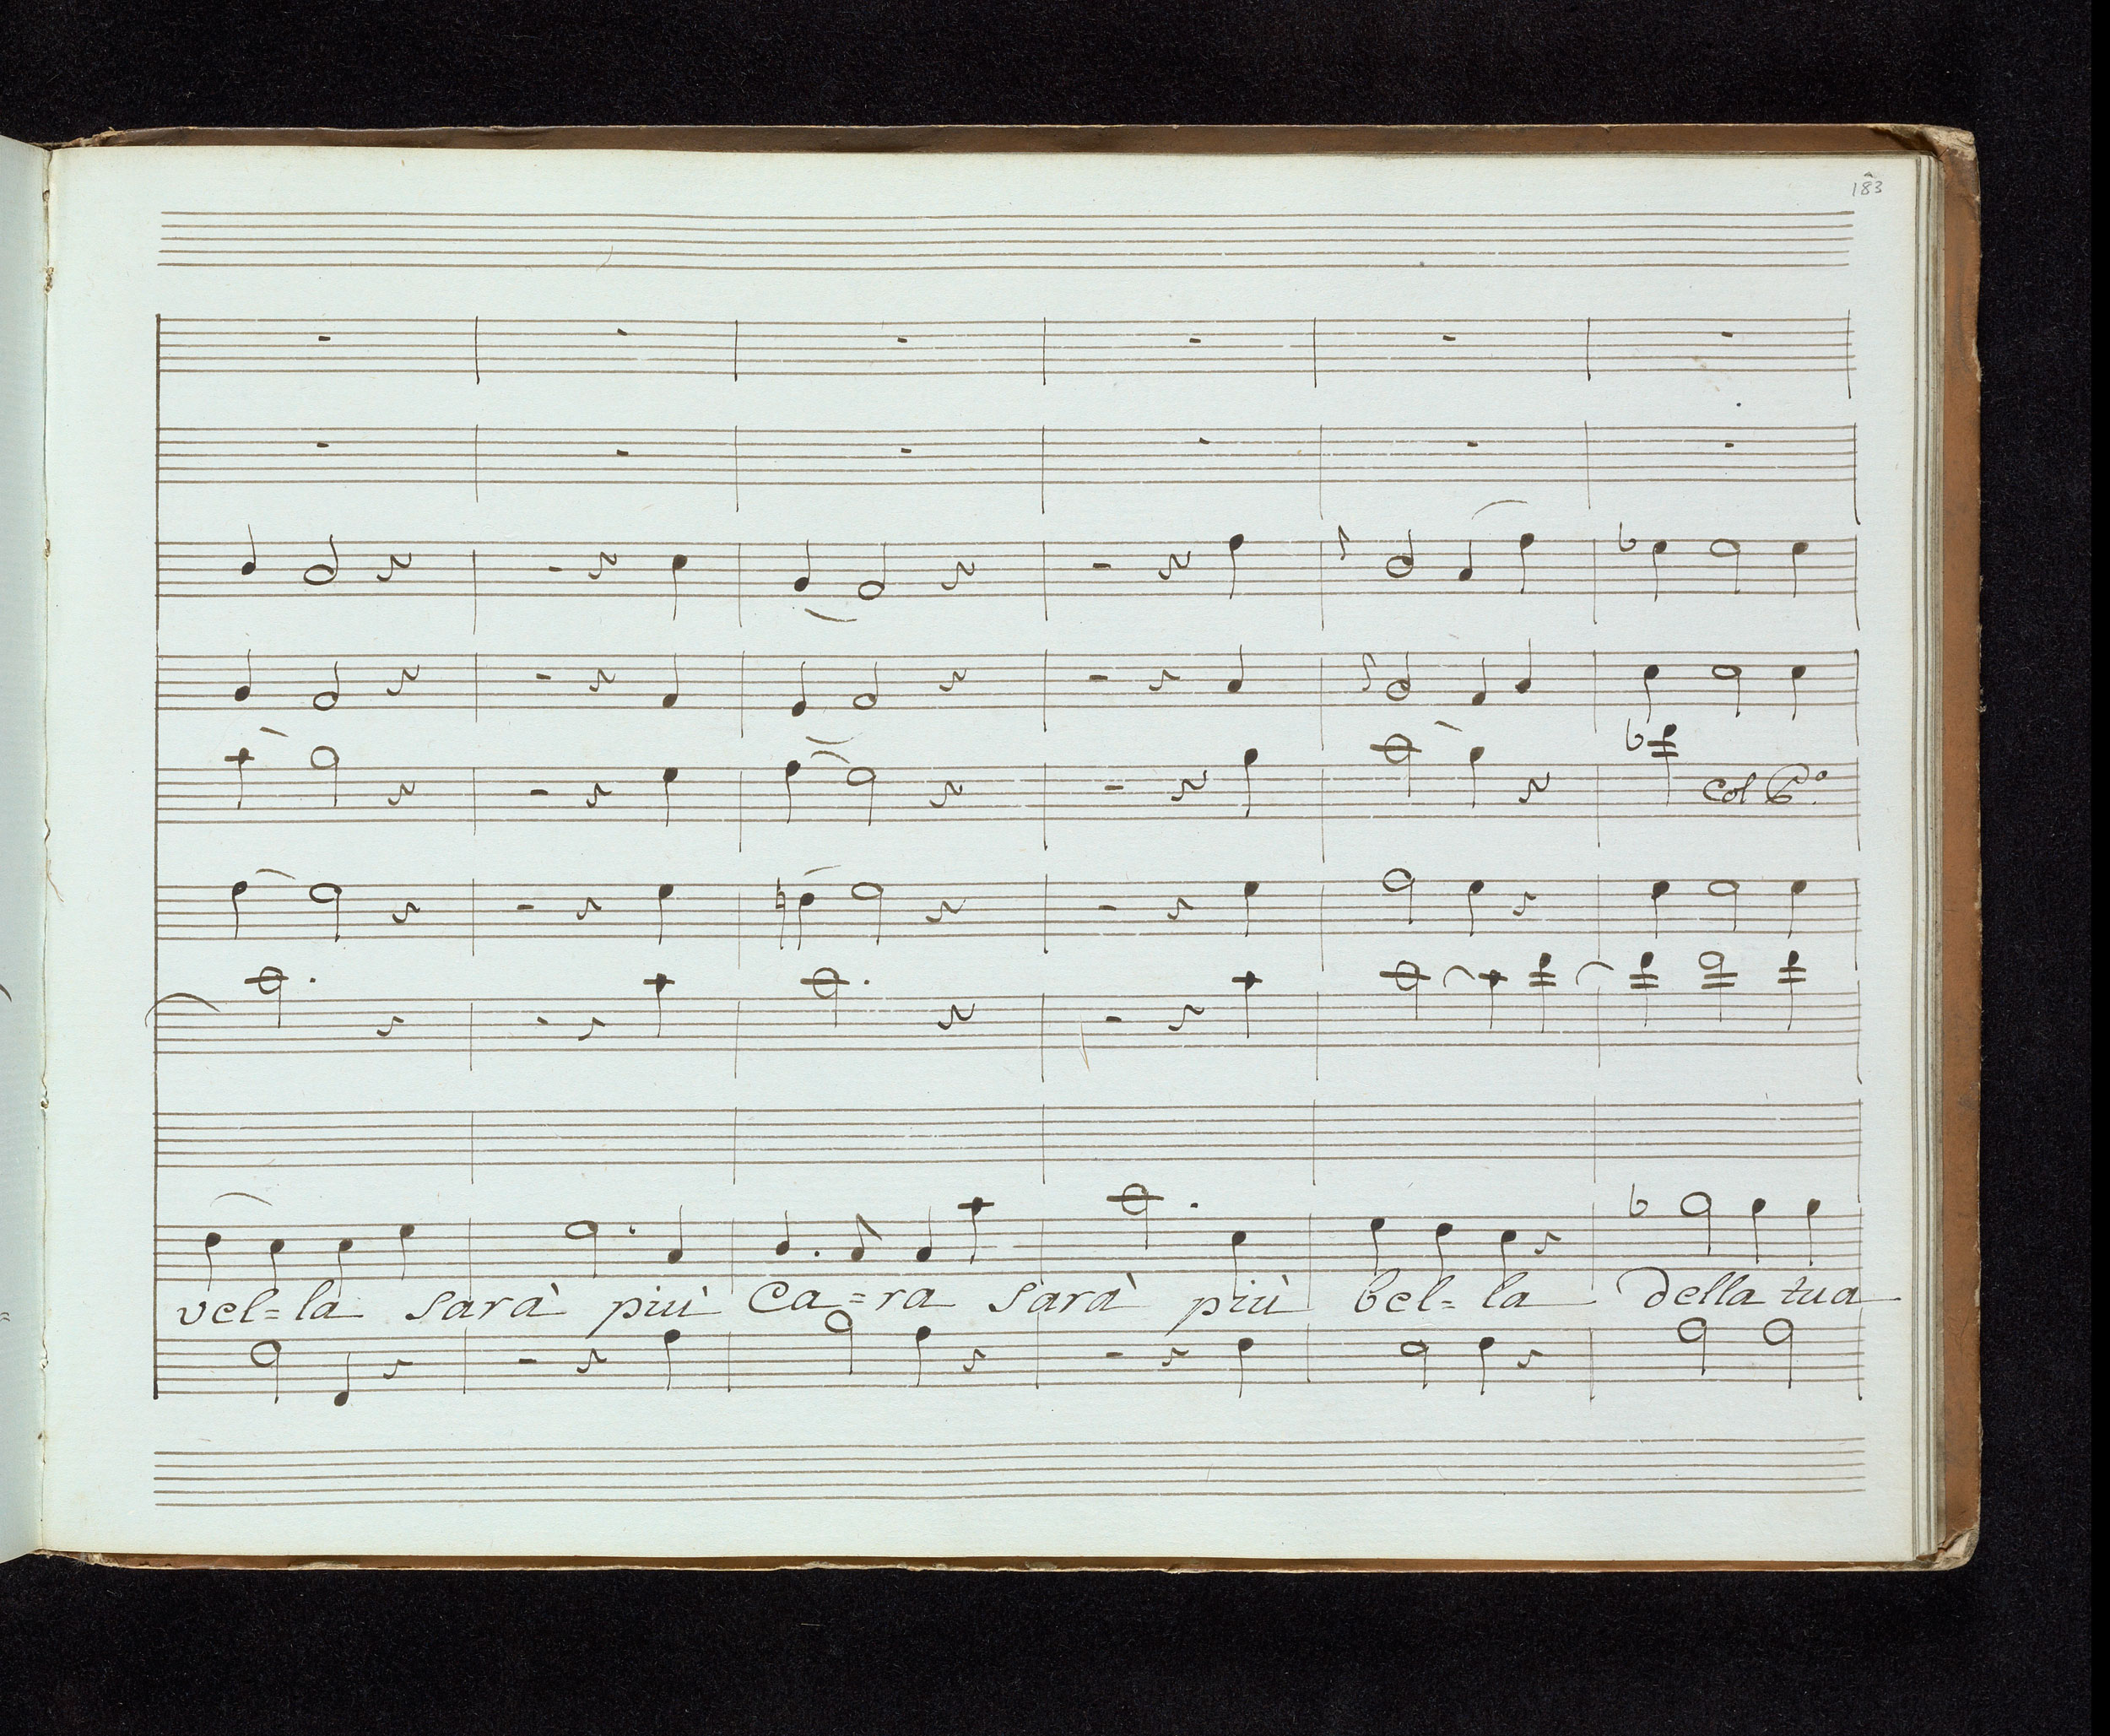 183
col 6º.
vel=la sarà più Ca=ra sarà più bel=la della tua